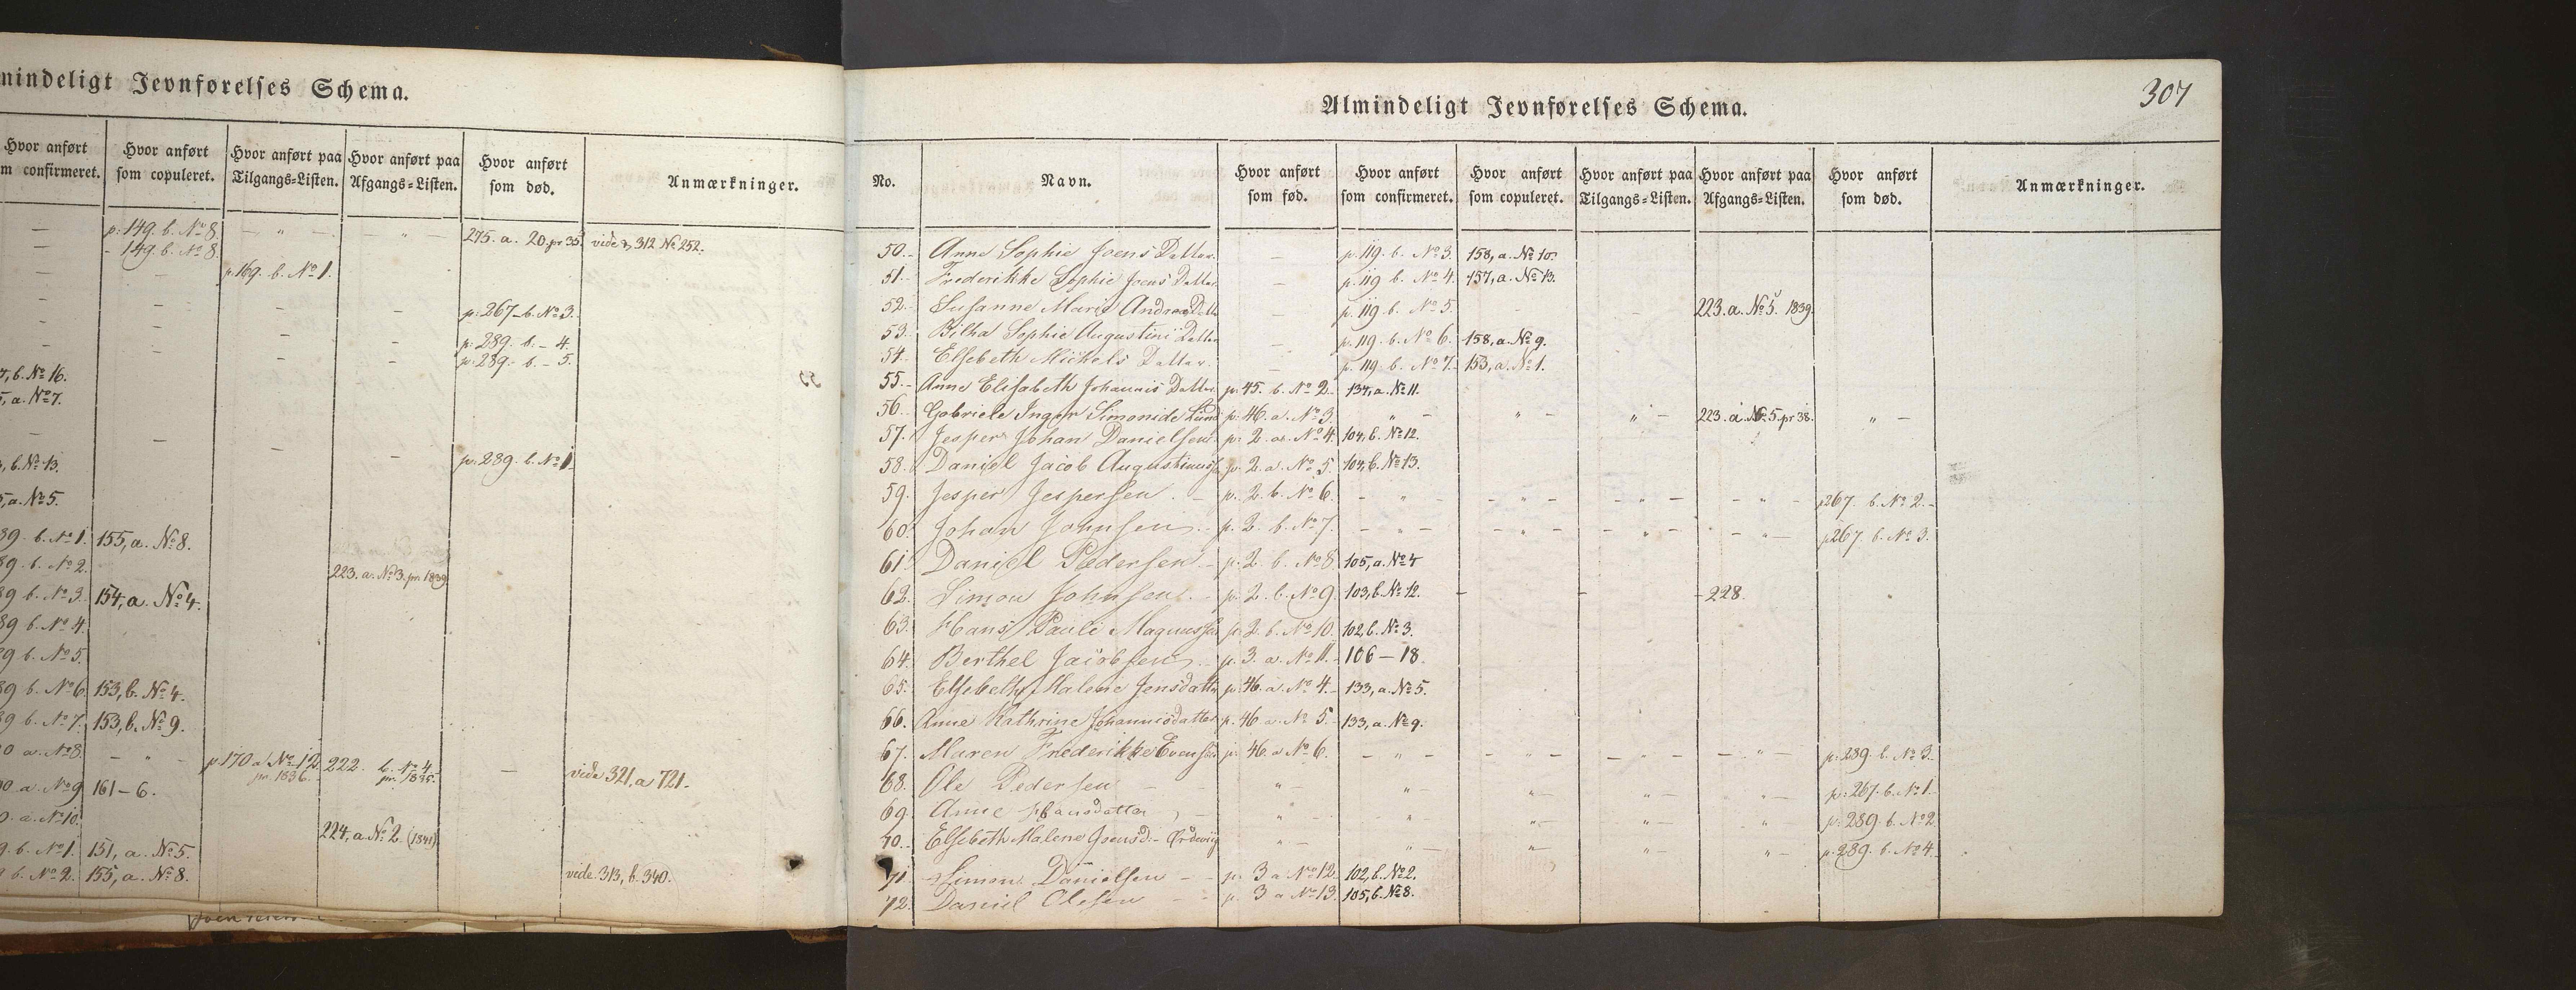 mindeligt Jevnførelses Schema.
Hvor anført
m confirmeret.
Hvor anført
som copuleret.
Hvor anført paa
Tilgangs=Listen.
Hvor anført paa
Afgangs=Listen.
Hvor anført
som død.
Anmærkninger.
— p. 149. b. No 8. — " — — " — 275. a. 20. pr 35. vide p. 312 No 252.
- 149. b. No 8.
— — p. 169. b. No 1.
— — — — p. 267- b. No 3.
— — — — p. 289. b. - 4.
— — — — p. 289. - b. - 5.
7, b. No 16.
5, a. No 7.
— — — — p. 289. b. No 1.
b. No 13.
5, a. No 5.
89. b. No 1. 155, a. No 8.
89. b. No 2. 223. a. No 3. pr. 1839
89 b. No 3. 154, a. No 4.
89 b. No 4.
89 b. No 5.
89 b. No 6. 153, b. No 4.
89 b. No 7. 153, b. No 9.
0 a. No 8. — " — p 170 a. No 12 pr. 1836. 222. b. No 4. pr. 1835. — vide 321, a 721.
90 a. No 9 161 - 6.
0. a. No 10. 224, a. No 2. (1841)
9. b. No 1. 151, a. No 5.
b. No 2. 155, a. No 8. vide 313, b. 340.
307
Almindeligt Jevnførelses Schema.
No.
Navn.
Hvor anført
som fød.
Hvor anført
som confirmeret.
Hvor anført
som copuleret.
Hvor anført paa
Tilgangs=Listen.
Hvor anført paa
Afgangs=Listen.
Hvor anført
som død.
Anmærkninger.
50. Anne Sophie Joens Datter. — p. 119. b. No 3. 158, a. No 10.
51. Frederikke Sophie Joens Datter — p. 119 b. No 4. 157, a. No 13.
52. Susanne Marie Andreas Dtt — p. 119. b. No 5. - - 223. a. No 5. 1839.
53. Bilha Sophie Augustini Datter — p. 119. b. No 6. 158, a. No 9.
54. Elsebeth Michels Datter. — p. 119 b. No 7. 153, a. No 1.
55. Anne Elisabeth Johannis Datter p. 45. b. No 2. 134, a. No 11.
56. Gabriele Inger Simonide Lund p. 46. a. No 3. " — " — " — 223. a. No 5. pr 38. " —
57. Jesper Johan Danielsen. p. 2. a. No 4. 104, b. No 12.
58. Daniel Jacob Augustinussen p. 2. a. No 5. 104, b. No 13.
59. Jesper Jespersen. — p. 2. b. No 6. — " — — " — — " — — " — p 267. b. No 2.
60. Johan Johnsen. - p. 2. b. No 7. — " — — " — — " — — " — p 267. b. No 3.
61. Daniel Pedersen — p. 2. b. No 8. 105, a. No 4
62. Simon Johnsen. - p. 2. b. No 9. 103, b. No 12. — — - 228.
63. Hans Pauli Magnussen p. 2. b. No 10. 102, b. No 3.
64. Berthel Jacobsen - p. 3. a. No 11. - 106 - 18.
65. Elsebeth Malene Jensdatter p. 46. a. No 4. - 133, a. No 5.
66. Anne Kathrine Johannisdatter p. 46. a. No 5. - 133, a. No 9.
67. Maren Frederikke Evensen p. 46. a No 6. — " — — " — — " — — " — p. 289. b. No 3.
68. Ole Pedersen — " — " — " — " — " — p. 267. b. No 1.
69. Anne Hansdatter — " — " — " — " — " p. 289. b. No 2
70. Elsebeth Malene Joensd. - Ørdeviig " — " — " — " — " — p. 289. b. No 4.
71. Simon Danielsen - - p. 3 a. No 12. 102, b. No 2.
72. Daniel Olesen - - p. 3 a No 13. 105, b. No 8.